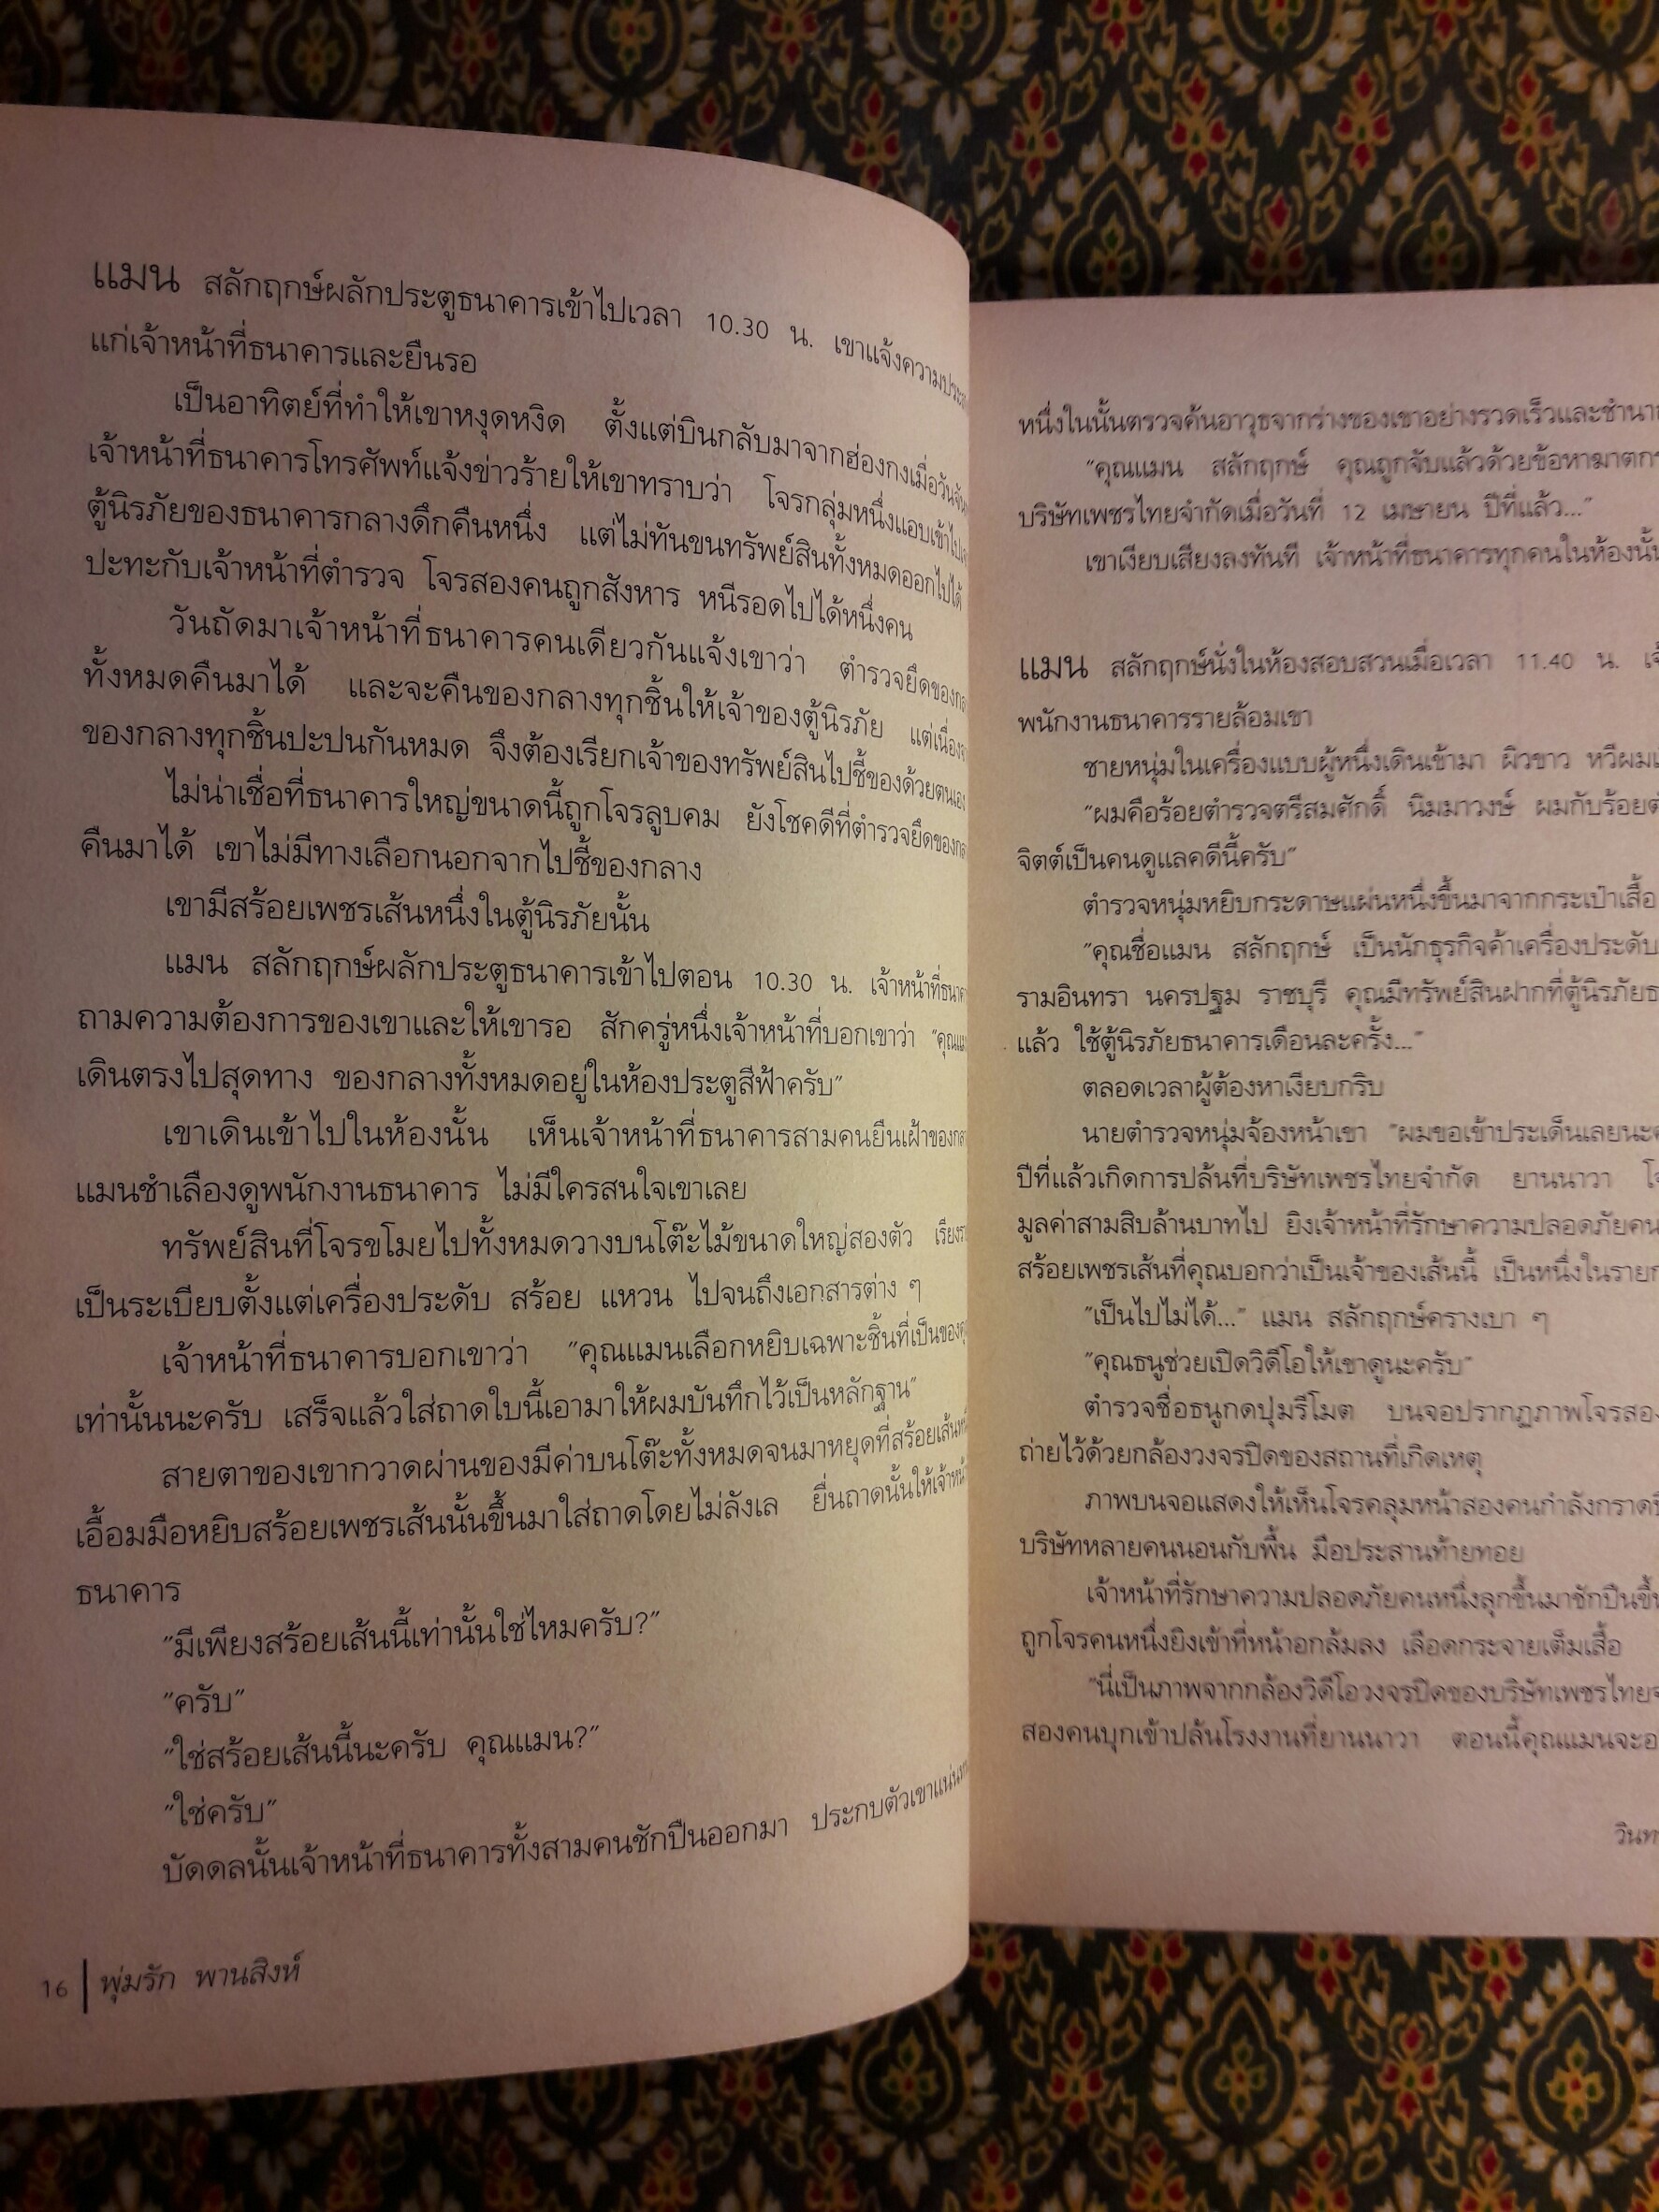 แมน สลักฤกษ์ผลักประตูธนาคารเข้าไปเวลา 10.30 น. เขาแจ้งความประ
แก่เจ้าหน้าที่ธนาคารและยืนรอ
เป็นอาทิตย์ที่ทำให้เขาหงุดหงิด ตั้งแต่บินกลับมาจากฮ่องกงเมื่อวันจัน
เจ้าหน้าที่ธนาคารโทรศัพท์แจ้งข่าวร้ายให้เขาทราบว่า โจรกลุ่มหนึ่งแอบเข้าไป
ตู้นิรภัยของธนาคารกลางดึกคืนหนึ่ง แต่ไม่ทันขนทรัพย์สินทั้งหมดออกไปได้
ปะทะกับเจ้าหน้าที่ตำรวจ โจรสองคนถูกสังหาร หนีรอดไปได้หนึ่งคน
วันถัดมาเจ้าหน้าที่ธนาคารคนเดียวกันแจ้งเขาว่า ตำรวจยึดของ
ทั้งหมดคืนมาได้ และจะคืนของกลางทุกชิ้นให้เจ้าของตู้นิรภัย แต่เนื่อง
ของกลางทุกชิ้นปะปนกันหมด จึงต้องเรียกเจ้าของทรัพย์สินไปชี้ของด้วยตนเอง
ไม่น่าเชื่อที่ธนาคารใหญ่ขนาดนี้ถูกโจรลูบคม ยังโชคดีที่ตำรวจยึดของ
คืนมาได้ เขาไม่มีทางเลือกนอกจากไปชี้ของกลาง
เขามีสร้อยเพชรเส้นหนึ่งในตู้นิรภัยนั้น
แมน สลักฤกษ์ผลักประตูธนาคารเข้าไปตอน 10.30 น. เจ้าหน้าที่ธนา
ถามความต้องการของเขาและให้เขารอ สักครู่หนึ่งเจ้าหน้าที่บอกเขาว่า "คุณแม
เดินตรงไปสุดทาง ของกลางทั้งหมดอยู่ในห้องประตูสีฟ้าครับ"
เขาเดินเข้าไปในห้องนั้น เห็นเจ้าหน้าที่ธนาคารสามคนยืนเฝ้าของ
แมนชำเลืองดูพนักงานธนาคาร ไม่มีใครสนใจเขาเลย
ทรัพย์สินที่โจรขโมยไปทั้งหมดวางบนโต๊ะไม้ขนาดใหญ่สองตัว เรียง
เป็นระเบียบตั้งแต่เครื่องประดับ สร้อย แหวน ไปจนถึงเอกสารต่าง ๆ
เจ้าหน้าที่ธนาคารบอกเขาว่า "คุณแมนเลือกหยิบเฉพาะชิ้นที่เป็นของ
เท่านั้นนะครับ เสร็จแล้วใส่ถาดใบนี้เอามาให้ผมบันทึกไว้เป็นหลักฐาน"
สายตาของเขากวาดผ่านของมีค่าบนโต๊ะทั้งหมดจนมาหยุดที่สร้อยเส้น
เอื้อมมือหยิบสร้อยเพชรเส้นนั้นขึ้นมาใส่ถาดโดยไม่ลังเล ยื่นถาดนั้นให้เจ้า
ธนาคาร
"มีเพียงสร้อยเส้นนี้เท่านั้นใช่ไหมครับ?"
"ครับ"
"ใช่สร้อยเส้นนี้นะครับ คุณแมน?"
"ใช่ครับ"
บัดดลนั้นเจ้าหน้าที่ธนาคารทั้งสามคนชักปืนออกมา ประกบตัวเขาแน่น
16 | พุ่มรัก พานสิงห์
หนึ่งในนั้นตรวจค้นอาวุธจากร่างของเขาอย่างรวดเร็วและชำนา
"คุณแมน สลักฤกษ์ คุณถูกจับแล้วด้วยข้อหาฆาตก
บริษัทเพชรไทยจำกัดเมื่อวันที่ 12 เมษายน ปีที่แล้ว..."
เขาเงียบเสียงลงทันที เจ้าหน้าที่ธนาคารทุกคนในห้องนั้น
แมน สลักฤกษ์นั่งในห้องสอบสวนเมื่อเวลา 11.40 น. เจ้
พนักงานธนาคารรายล้อมเขา
ชายหนุ่มในเครื่องแบบผู้หนึ่งเดินเข้ามา ผิวขาว หวีผม
"ผมคือร้อยตำรวจตรีสมศักดิ์ นิมมาวงษ์ ผมกับร้อยต
จิตต์เป็นคนดูแลคดีนี้ครับ"
ตำรวจหนุ่มหยิบกระดาษแผ่นหนึ่งขึ้นมาจากกระเป๋าเสื้อ
"คุณชื่อแมน สลักฤกษ์ เป็นนักธุรกิจค้าเครื่องประดับ
รามอินทรา นครปฐม ราชบุรี คุณมีทรัพย์สินฝากที่ตู้นิรภัยธ
แล้ว ใช้ตู้นิรภัยธนาคารเดือนละครั้ง..."
ตลอดเวลาผู้ต้องหาเงียบกริบ
นายตำรวจหนุ่มจ้องหน้าเขา "ผมขอเข้าประเด็นเลยนะค
ปีที่แล้วเกิดการปล้นที่บริษัทเพชรไทยจำกัด ยานนาวา โจ
มูลค่าสามสิบล้านบาทไป ยิงเจ้าหน้าที่รักษาความปลอดภัยคน
สร้อยเพชรเส้นที่คุณบอกว่าเป็นเจ้าของเส้นนี้ เป็นหนึ่งในราย
"เป็นไปไม่ได้..." แมน สลักฤกษ์ครางเบา ๆ
"คุณธนูช่วยเปิดวิดีโอให้เขาดูนะครับ"
ตำรวจชื่อธนูกดปุ่มรีโมต บนจอปรากฏภาพโจรสอง
ถ่ายไว้ด้วยกล้องวงจรปิดของสถานที่เกิดเหตุ
ภาพบนจอแสดงให้เห็นโจรคลุมหน้าสองคนกำลังกราด
บริษัทหลายคนนอนกับพื้น มือประสานท้ายทอย
เจ้าหน้าที่รักษาความปลอดภัยคนหนึ่งลุกขึ้นมาชักปืนขึ้น
ถูกโจรคนหนึ่งยิงเข้าที่หน้าอกล้มลง เลือดกระจายเต็มเสื้อ
"นี่เป็นภาพจากกล้องวิดีโอวงจรปิดของบริษัทเพชรไทยจ
สองคนบุกเข้าปล้นโรงงานที่ยานนาวา ตอนนี้คุณแมนจะอ
วินท